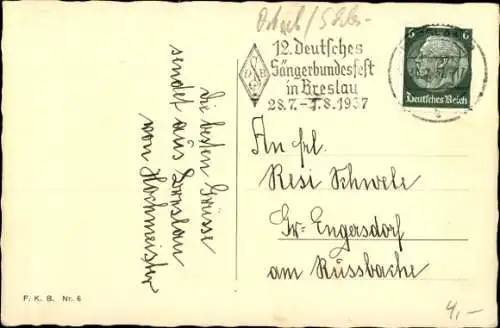 12. Deutsches
Sängerbundesfest
in Breslau
28.7.-1.8.1937
6
Deutsches Reich
An Frl.
Resi Schwele
Gr. Engersdorf
am Russbache
die besten Grüsse
sendet aus Breslau
von Hochmeister
F. K. B. Nr. 6
4,-